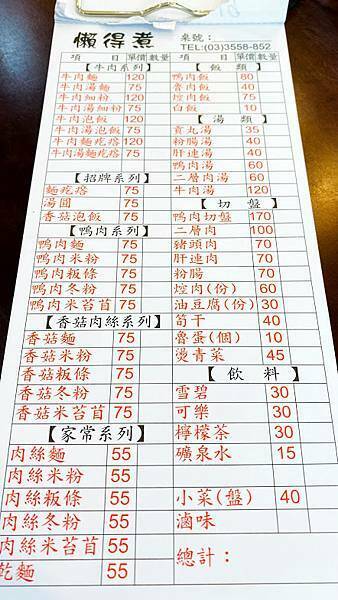 懶得煮
桌號：
TEL:(03)3558-852
項 目 單價 數量
【牛肉系列】
牛肉麵 120
牛肉湯麵 75
牛肉細粉 120
牛肉湯細粉 75
牛肉泡飯 120
牛肉湯泡飯 75
牛肉麵疙瘩 120
牛肉湯麵疙瘩 75
【招牌系列】
麵疙瘩 75
湯圓 75
香菇泡飯 75
【鴨肉系列】
鴨肉麵 75
鴨肉米粉 75
鴨肉粄條 75
鴨肉冬粉 75
鴨肉米苔苜 75
【香菇肉絲系列】
香菇麵 75
香菇米粉 75
香菇粄條 75
香菇冬粉 75
香菇米苔苜 75
【家常系列】
肉絲麵 55
肉絲米粉 55
肉絲粄條 55
肉絲冬粉 55
肉絲米苔苜 55
乾麵 55
項 目 單價 數量
【飯 類】
鴨肉飯 80
魯肉飯 40
焢肉飯 75
白飯 10
【湯 類】
貢丸湯 35
粉腸湯 40
肝連湯 40
鴨肉湯 60
二層肉湯 60
牛肉湯 120
【切 盤】
鴨肉切盤 170
二層肉 100
豬頭肉 70
肝連肉 70
粉腸 70
焢肉(份) 60
油豆腐(份) 30
筍干 40
魯蛋(個) 10
燙青菜 45
【飲 料】
雪碧 30
可樂 30
檸檬茶 30
礦泉水 15
小菜(盤) 40
滷味
總計：